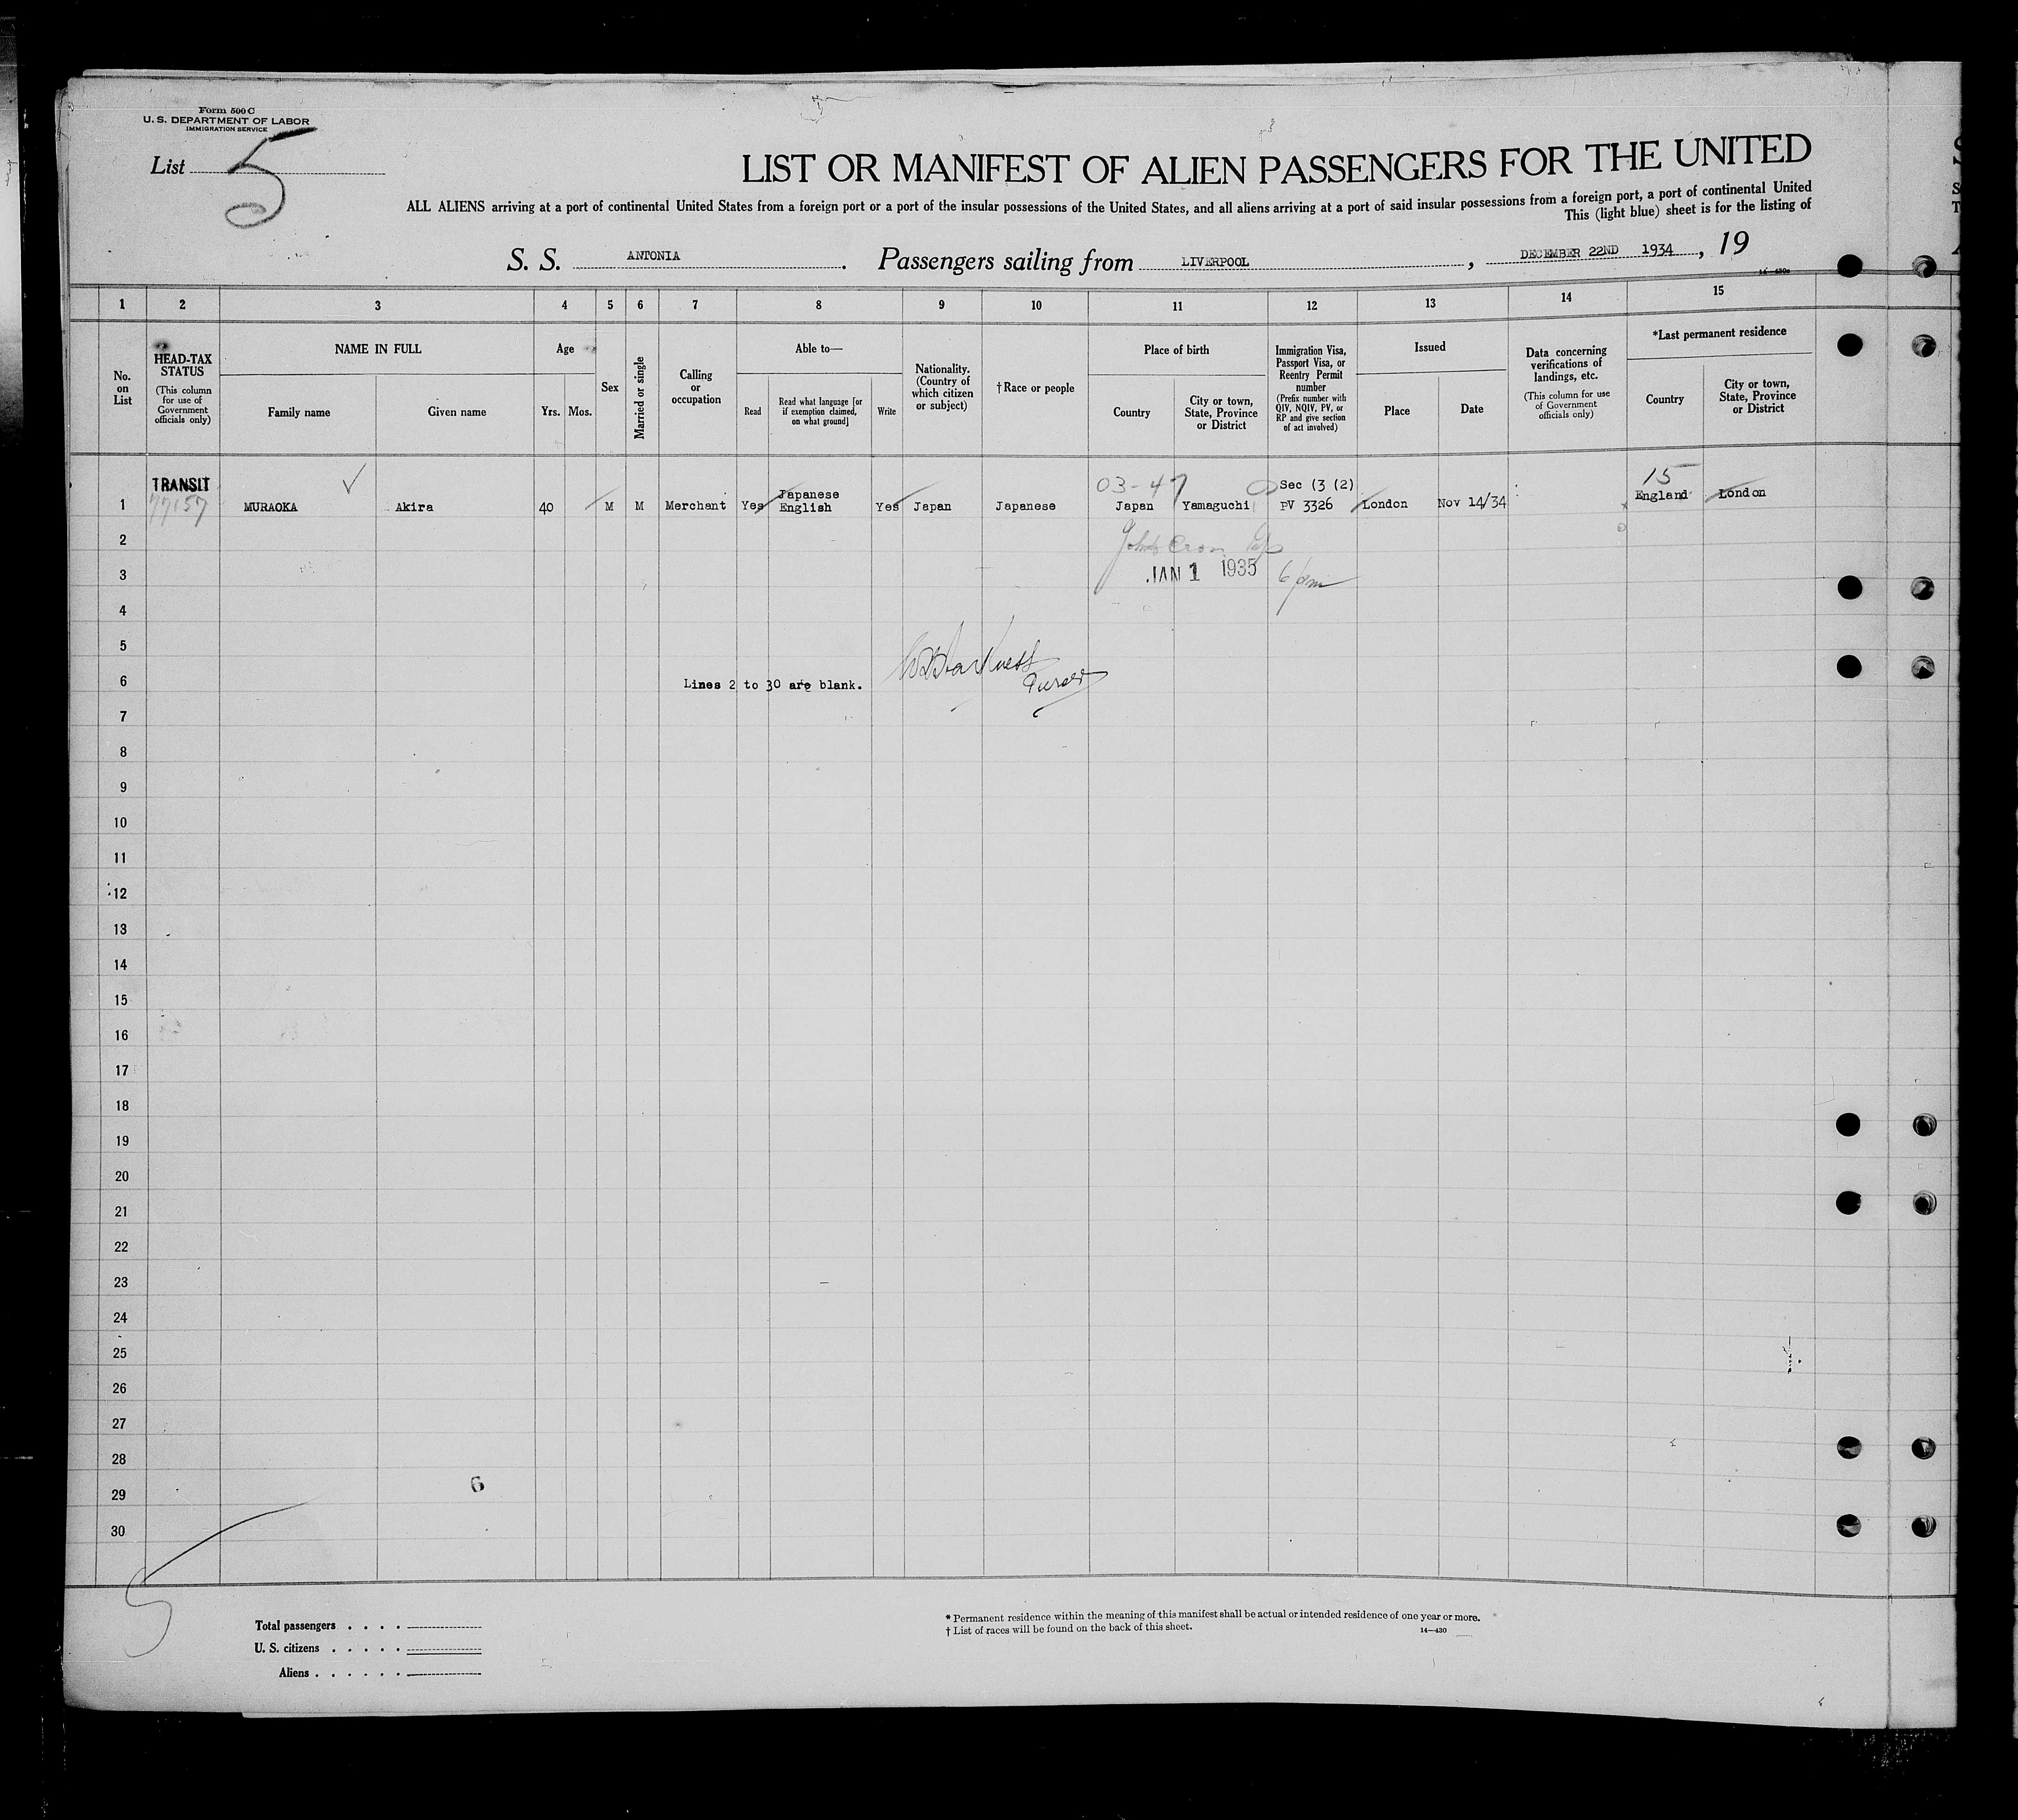 Form 500 C
U. S. DEPARTMENT OF LABOR
IMMIGRATION SERVICE
List 5
LIST OR MANIFEST OF ALIEN PASSENGERS FOR THE UNITED
ALL ALIENS arriving at a port of continental United States from a foreign port or a port of the insular possessions of the United States, and all aliens arriving at a port of said insular possessions from a foreign port, a port of continental United
This (light blue) sheet is for the listing of
S. S. ANTONIA. Passengers sailing from LIVERPOOL, DECEMBER 22ND 1934, 19
1 2 3 4 5 6 7 8 9 10 11 12 13 14 15
No. on List
HEAD-TAX STATUS
(This column for use of Government officials only)
NAME IN FULL
Family name
Given name
Age
Yrs.
Mos.
Sex
Married or single
Calling or occupation
Able to—
Read
Read what language [or if exemption claimed, on what ground]
Write
Nationality. (Country of which citizen or subject)
†Race or people
Place of birth
Country
City or town, State, Province or District
Immigration Visa, Passport Visa, or Reentry Permit number
(Prefix number with QIV, NQIV, PV, or RP and give section of act involved)
Issued
Place
Date
Data concerning verifications of landings, etc.
(This column for use of Government officials only)
*Last permanent residence
Country
City or town, State, Province or District
TRANSIT
77157
03-47
Sec (3 (2)
15
1 MURAOKA Akira 40 M M Merchant Yes Japanese English Yes Japan Japanese Japan Yamaguchi PV 3326 London Nov 14/34 England London
2
3
JAN 1 1935 6 pm
4
5
6
Lines 2 to 30 are blank.
Purser
7
8
9
10
11
12
13
14
15
16
17
18
19
20
21
22
23
24
25
26
27
28
29
6
30
5
Total passengers
U. S. citizens
Aliens
* Permanent residence within the meaning of this manifest shall be actual or intended residence of one year or more.
† List of races will be found on the back of this sheet.
14—430